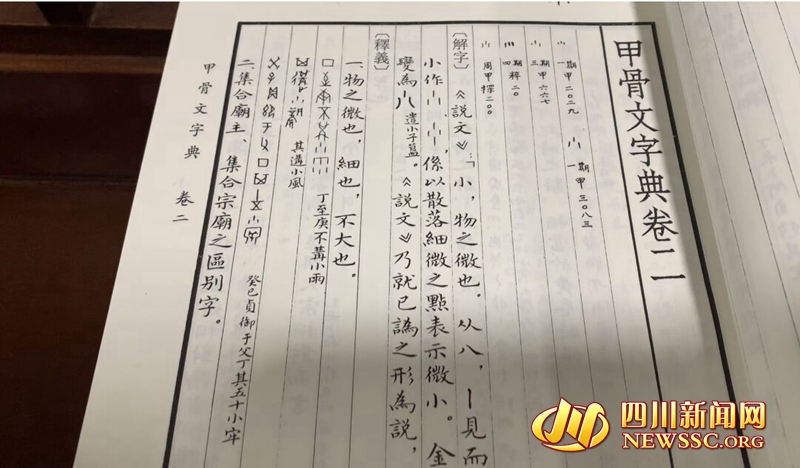 甲骨文字典卷二
一期 甲二〇二九 一期 甲三〇八三
三期 甲六六七
四期 粹二〇
周甲探二〇〇
〔解字〕《說文》:「小,物之微也,从八,丨見而
小作 係以散落細微之點表示微小。金
變為 遣小子簋。《說文》乃就已譌之形為說,
〔釋義〕
一、物之微也,細也,不大也。
丁至庚不冓小雨
其遘小風
癸巳貞御于父丁其五十小牢
二、集合廟主、集合宗廟之區別字。
甲骨文字典 卷二
四川新闻网
NEWSSC.ORG